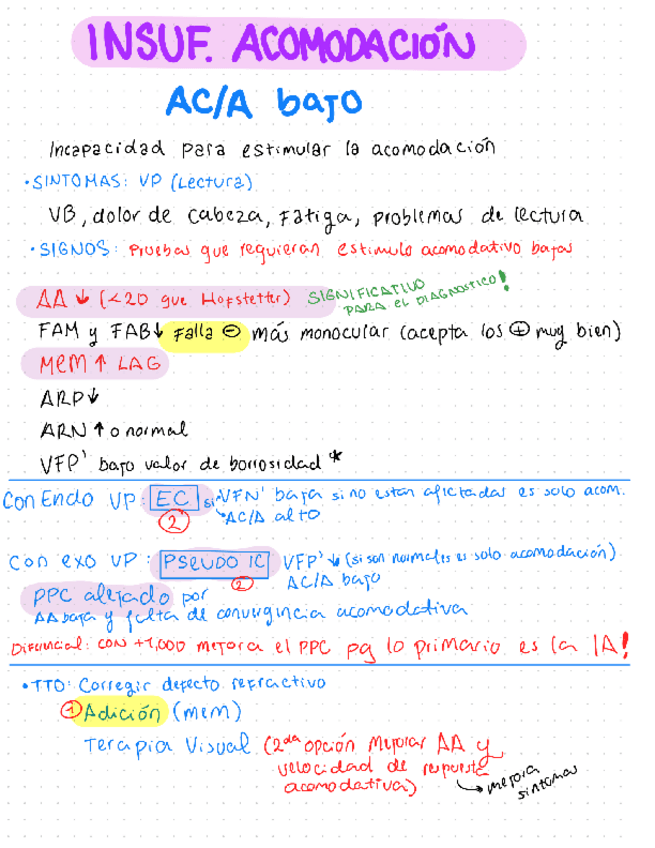 INSUF. ACOMODACIÓN
AC/A bajo
Incapacidad para estimular la acomodación
• SINTOMAS: VP (Lectura)
VB, dolor de cabeza, Fatiga, problemas de lectura
• SIGNOS: Pruebas que requieran estimulo acomodativo bajas
AA ↓ (<2D que Hofstetter) SIGNIFICATIVO PARA EL DIAGNOSTICO!
FAM y FAB↓ Falla ⊖ más monocular (acepta los ⊕ muy bien)
MEM ↑ LAG
ARP↓
ARN ↑ o normal
VFP' bajo valor de borrosidad *
Con Endo VP: EC si VFN' baja si no estan afectadas es solo acom.
② AC/A alto
Con exo VP: PSEUDO IC VFP' ↓ (si son normales es solo acomodación)
② AC/A bajo
PPC alejado por
AA baja y falta de convergencia acomodativa
Diferencial: CON +1,000 mejora el PPC pq lo primario es la IA!
• TTO: Corregir defecto refractivo
① Adición (mem)
Terapia Visual (2da opción Mejorar AA y
velocidad de respuesta
acomodativa) → mejora
sintomas